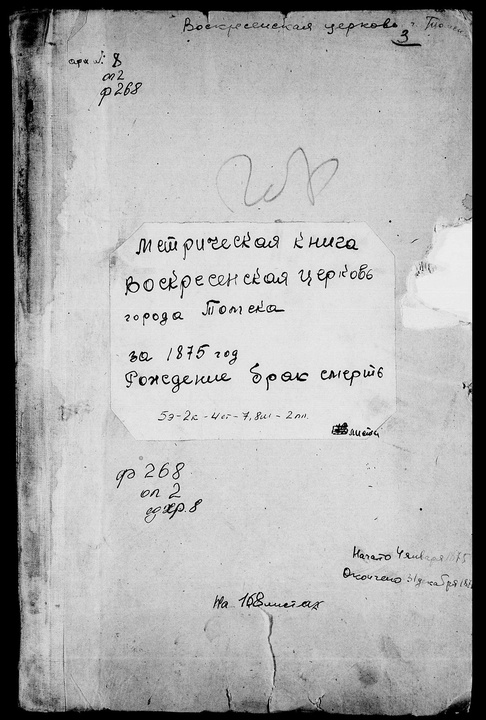 Воскресенская церковь г. Томск
3
арх № 8
оп 2
ф 268
Метрическая книга
Воскресенская церковь
города Томска
за 1875 год
Рождение брак смерть
листы
ф 268
оп 2
ед хр. 8
Начато 4 января 1875
Окончено 31 декабря 187
На 168 листах